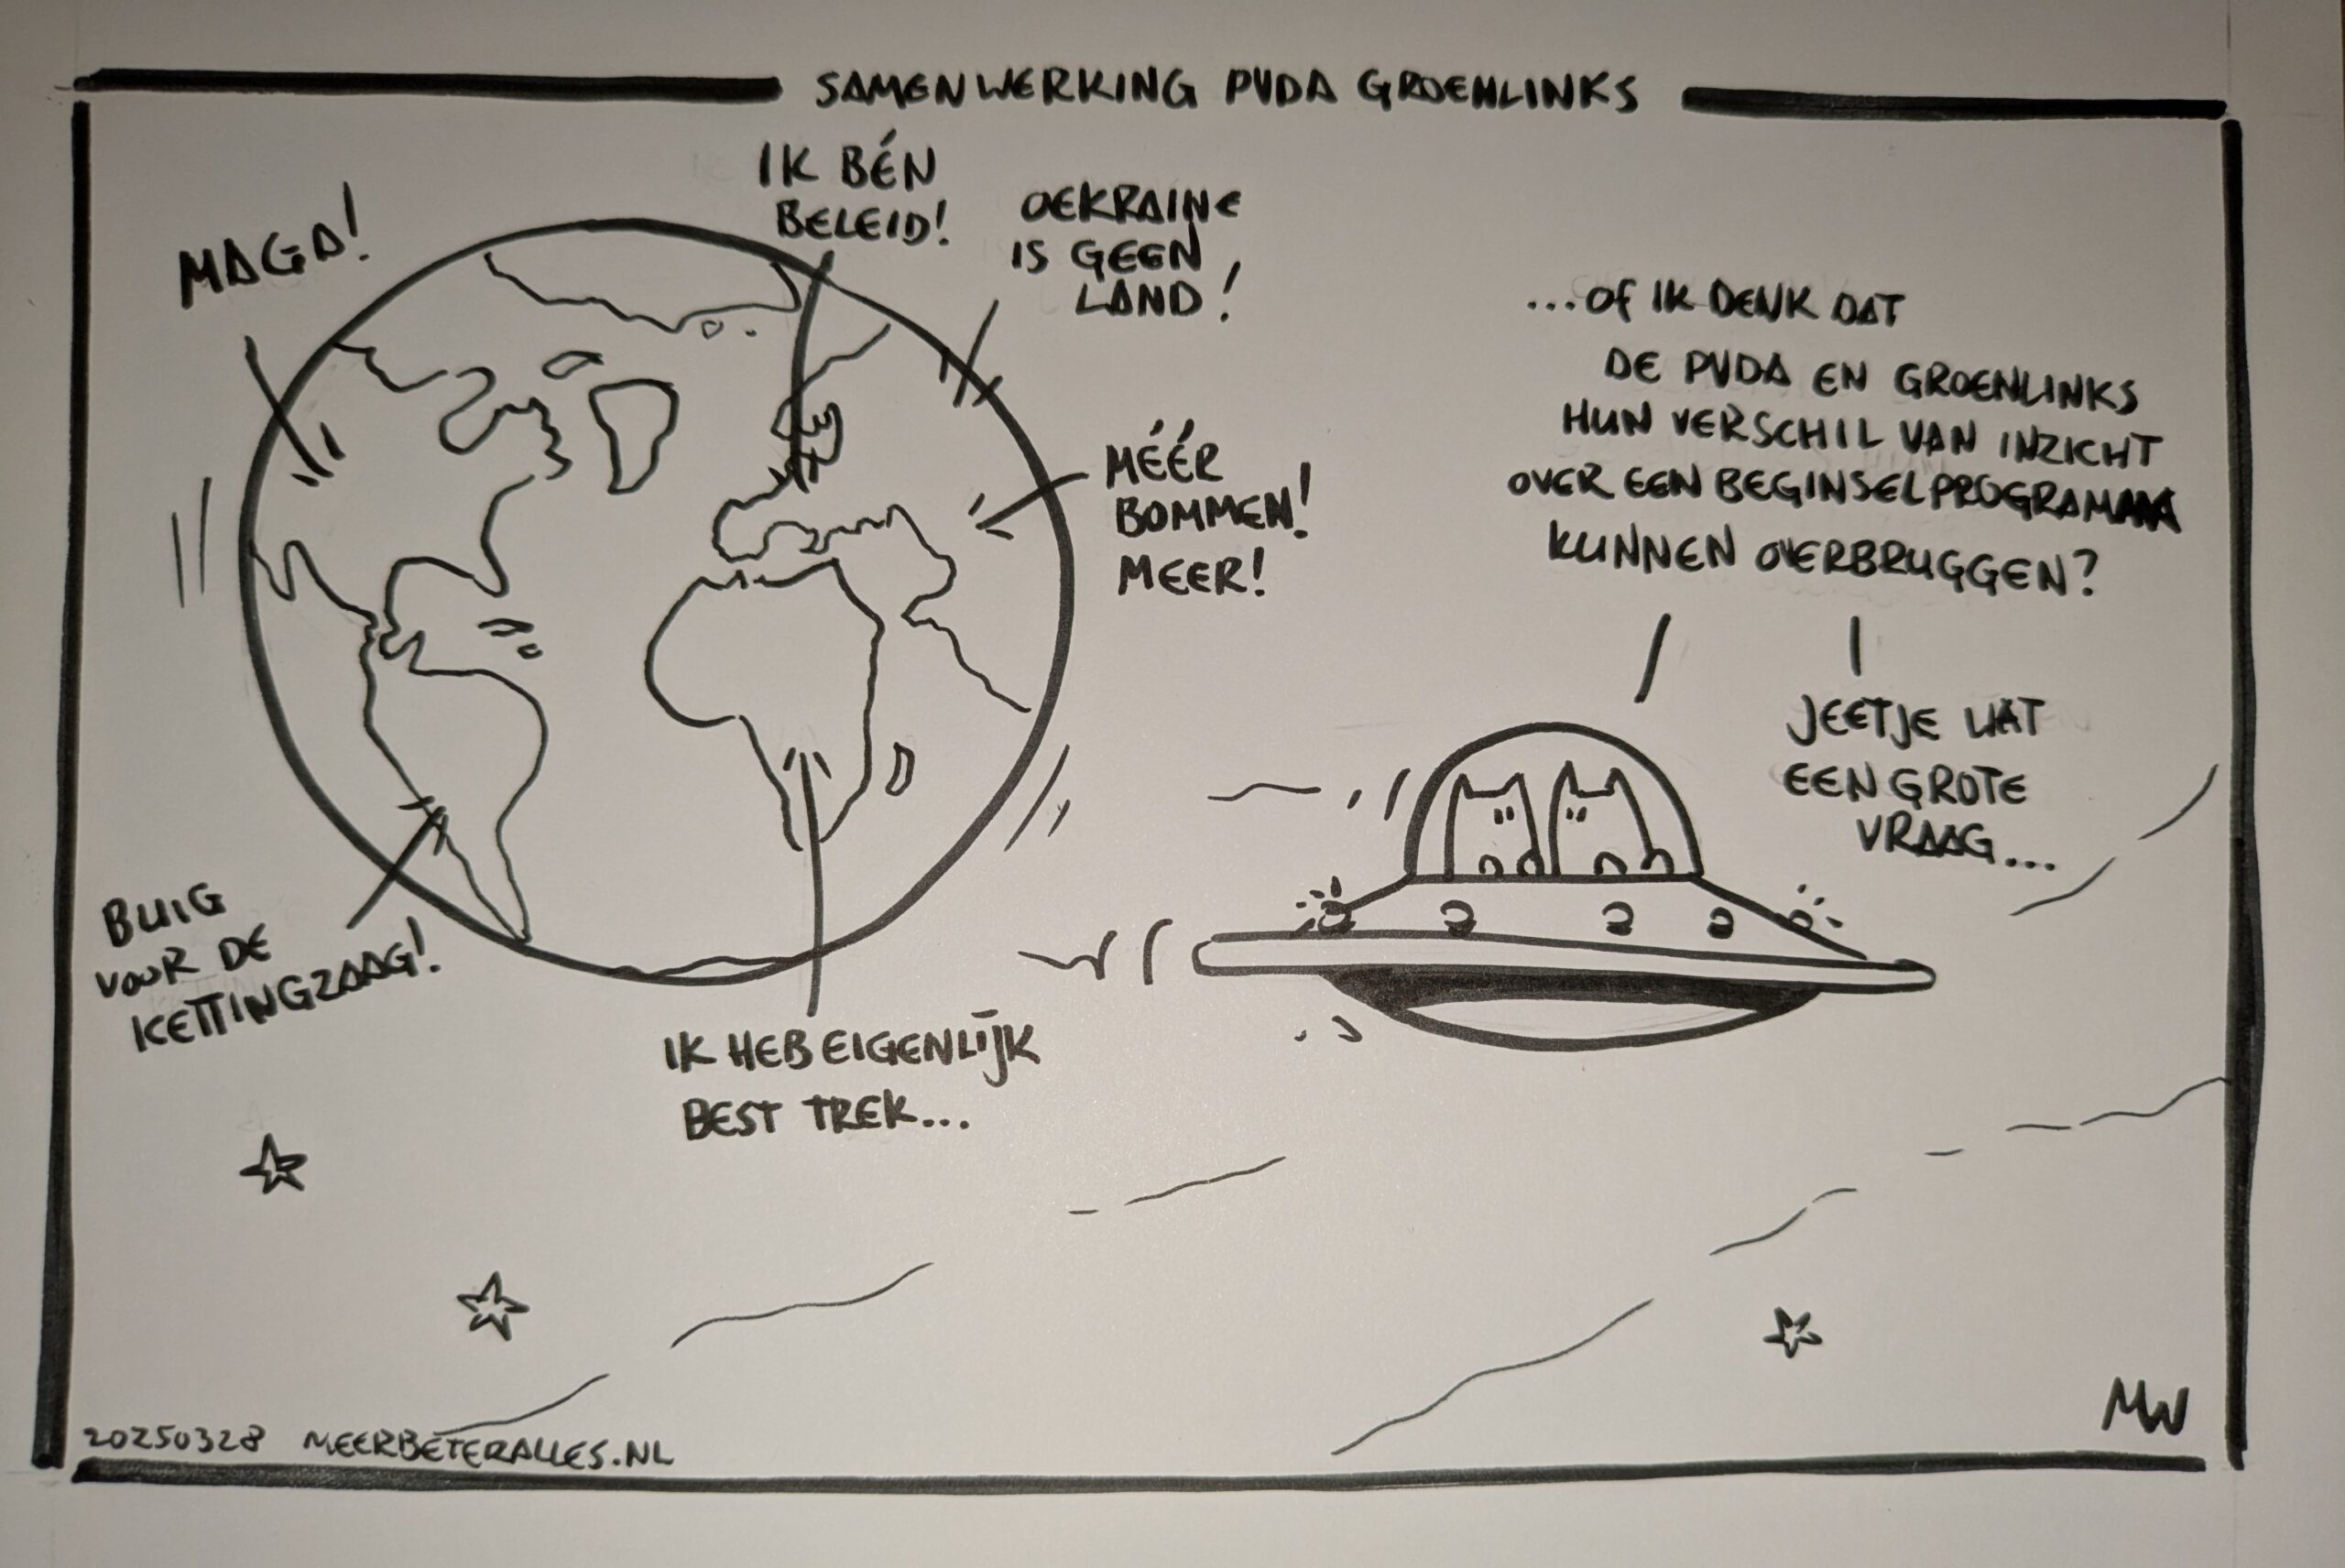 SAMENWERKING PVDA GROENLINKS
MAGA!
IK BÉN
BELEID!
OEKRAINE
IS GEEN
LAND!
MÉÉR
BOMMEN!
MEER!
BUIG
VOOR DE
KETTINGZAAG!
IK HEB EIGENLIJK
BEST TREK...
...OF IK DENK DAT
DE PVDA EN GROENLINKS
HUN VERSCHIL VAN INZICHT
OVER EEN BEGINSELPROGRAMMA
KUNNEN OVERBRUGGEN?
JEETJE WAT
EEN GROTE
VRAAG...
20250328 MEERBETERALLES.NL
MW